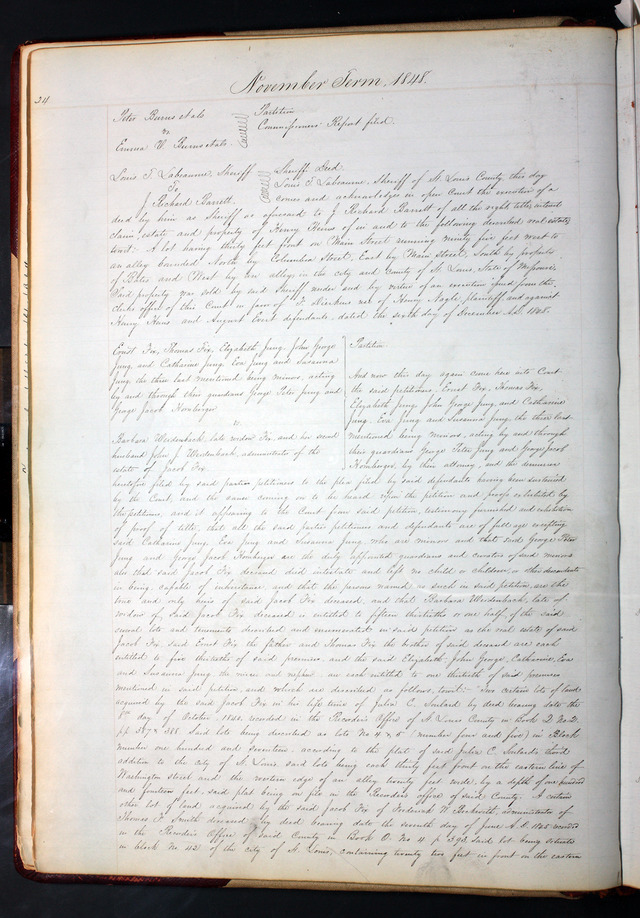 November Term, 1848.
34
Peter Burns et als
vs
Emma W. Burns et als.
Partition
Commissioners Report filed.
Louis T. Labeaume, Sheriff
To
J. Richard Barrett.
Sheriffs Deed.
Louis T. Labeaume, Sheriff of St. Louis County, this day
comes and acknowledges in open Court the execution of a
deed by him as Sheriff as aforesaid to J Richard Barrett of all the right, title, interest
claim, estate and property of Henry of in and to the following described real estate,
towit: A lot having thirty feet front on Main Street running ninety five feet west to
an alley bounded North by Columbia Street, East by Main Street, South by property
of Bates and West by an alley in the city and County of St. Louis, State of Missouri.
Said property was sold by said Sheriff under and by virtue of an execution issued from the
clerks office of this Court in favor of use of Henry Nagle, plaintiff and against
Henry and August Evert defendants, dated the sixth day of December A.D. 1848.
Ernst Fix, Thomas Fix, Elizabeth Jung, John George
Jung, and Catharine Jung, Eva Jung and Susanna
Jung the three last mentioned being minors, acting
by and through their guardians George Peter Jung and
George Jacob Hornberger
vs.
Barbara Weidenbach, late widow Fix, and her second
husband John J. Weidenbach, administrator of the
estate of Jacob Fix
Partition
And now this day again come here into Court
the said petitioners Ernst Fix, Thomas Fix,
Elizabeth Jung, John George Jung, and Catharine
Jung, Eva Jung and Susanna Jung, the three last
mentioned being minors, acting by and through
their guardians George Peter Jung and George Jacob
Hornberger, by their attorney, and the demurrer
heretofore filed by said parties petitioners to the plea filed by said defendants having been sustained
by the Court, and the same coming on to be heard upon the petition and proofs exhibited by
the petitioners, and it appearing to the Court from said petition, testimony furnished and exhibition
of proof of title, that all the said parties petitioners and defendants are of full age excepting
said Catharine Jung, Eva Jung and Susanna Jung, who are minors and that said George Peter
Jung and George Jacob Hornberger are the duly appointed guardians and curators of said minors
also that said Jacob Fix deceased died intestate and left no child or children, or their descendants
in being, capable of inheritance and that the persons named as such in said petition are the
true and only heirs of said Jacob Fix deceased, and that Barbara Weidenbach, late
widow of said Jacob Fix deceased is entitled to fifteen thirtieths or one half of the said
several lots and tenements described and enumerated in said petition as the real estate of said
Jacob Fix. Said Ernst Fix the father and Thomas Fix the brother of said deceased are each
entitled to five thirtieths of said premises, and the said Elizabeth, John George, Catharine, Eva
and Susanna Jung the nieces and nephew are each entitled to one thirtieth of said premises
mentioned in said petition and which are described as follows, towit: "Two certain lots of land
acquired by the said Jacob Fix in his life time of Julia C. Soulard by deed bearing date the
8th day of October 1842 recorded in the Recorders Office of St. Louis County in Book Q No. 2.
pp 387 & 388. Said lots being described as lots No 4 & 5 (number four and five) in Block
number one hundred and seventeen according to the plat of said Julia C. Soulards third
addition to the City of St. Louis, said lots being each thirty feet front on the eastern line of
Washington street and the western edge of an alley twenty feet wide, by a depth of one hundred
and fourteen feet, said plat being on file in the Recorders office of said County. A certain
other lot of land acquired by the said Jacob Fix of Frederick W. Beckwith, administrator of
Thomas F. Smith deceased by deed bearing date the seventh day of June A.D. 1845 recorded
in the Recorders Office of said County in Book O. No 4 p 392 said lot being situate
in block No 42 of the city of St. Louis, containing twenty two feet in front on the eastern